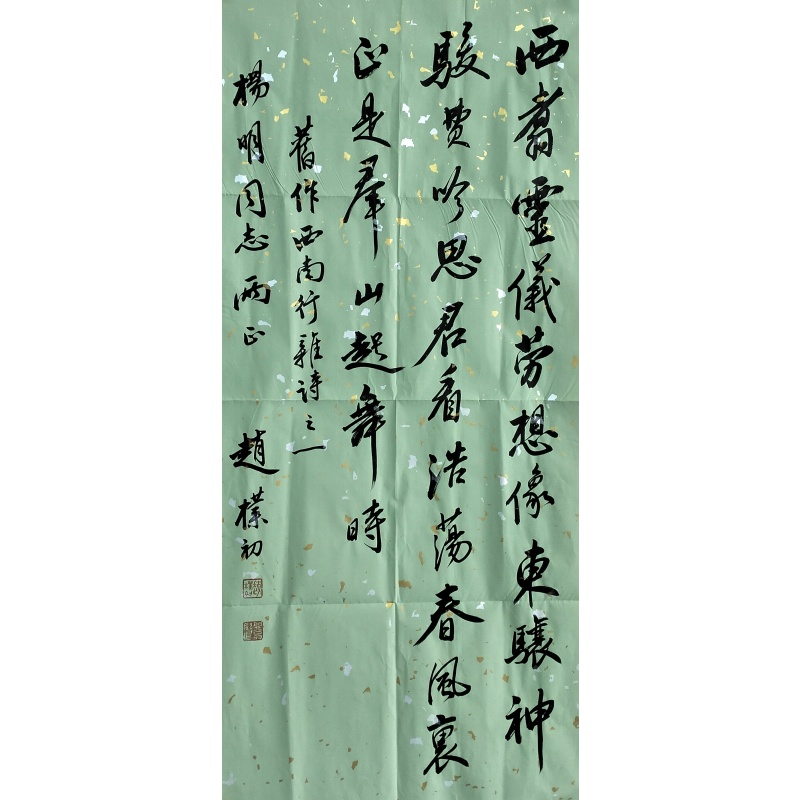 西翥靈儀劳想像東驤神
駿费吟思君看浩蕩春風裏
正是羣山起舞時
舊作西南行雜詩之一
楊明同志兩正
趙樸初